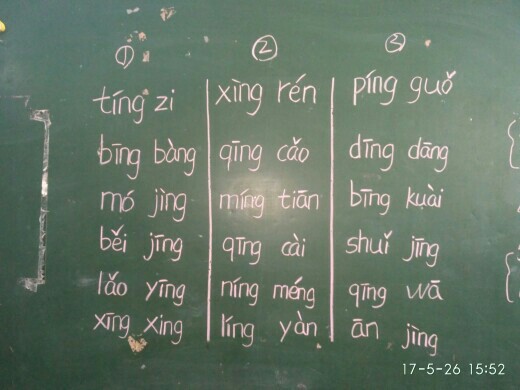 ① ② ③
tíng zi xìng rén píng guǒ
bīng bàng qīng cǎo dīng dāng
mó jìng míng tiān bīng kuài
běi jīng qīng cài shuǐ jīng
lǎo yīng níng méng qīng wā
xīng xing líng yàn ān jìng
17-5-26 15:52